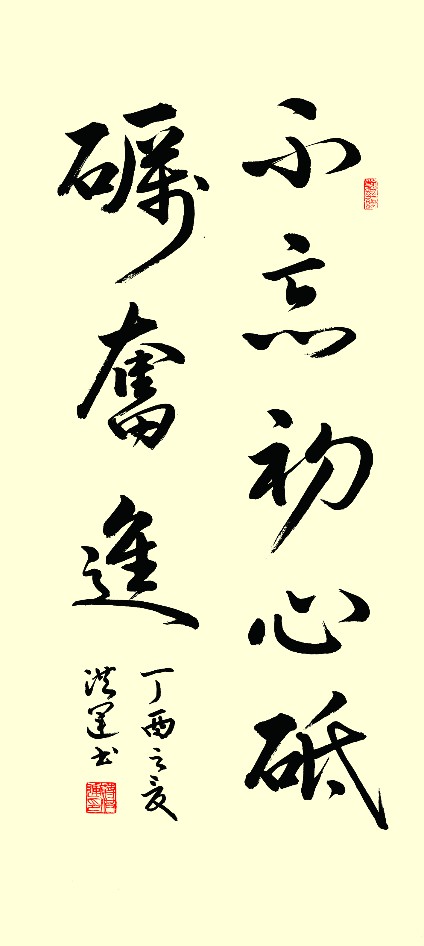 不忘初心砥
礪奮進
丁酉之夏
洪運書